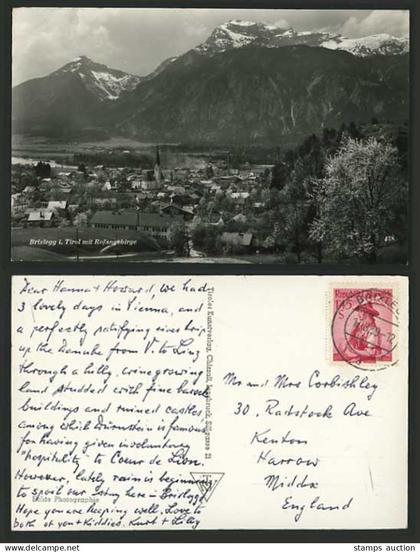 Brixlegg i. Tirol mit Rofangebirge
Dear Hanna + Howard, we had
3 lovely days in Vienna, and
a perfectly satisfying river trip
up the Danube from V. to Linz
through a hilly, wine growing
land studded with fine baroque
buildings and ruined castles,
among which Dürnstein is famous
for having given involuntary
"hospitality" to Coeur de Lion.
However, lately rain is beginning
to spoil our stay here in Brixlegg.
Hope you are keeping well. Love to
both of you + Kiddies. Kurt + Lilly
Echte Photographie
Tiroler Kunstverlag, Chizzali, Innsbruck,
11
Mr and Mrs Corbishley
30, Radstock Ave
Kenton
Harrow
Middx
England
www.stamps-auction.com